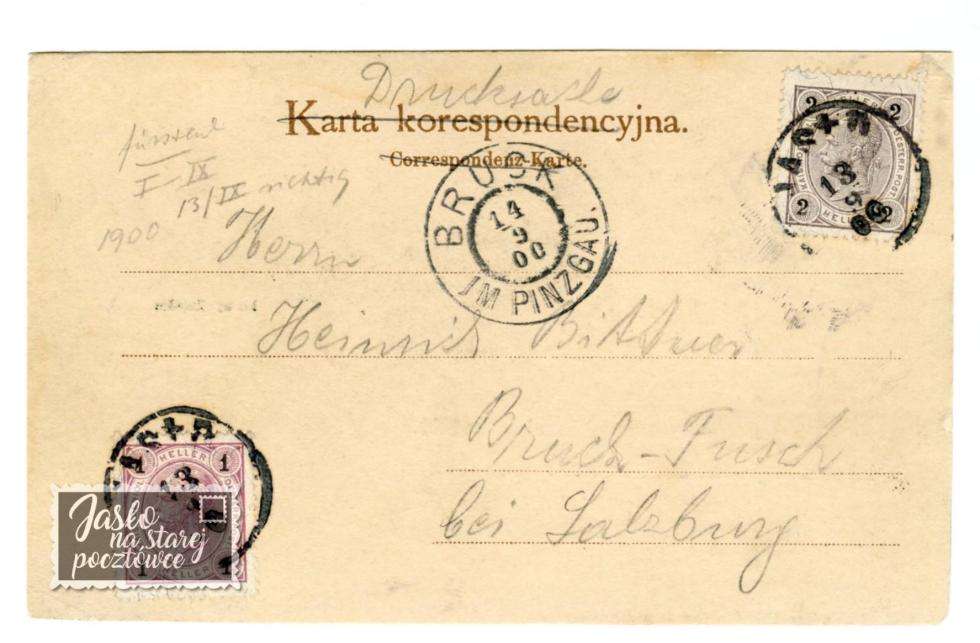 Drucksache
Karta korespondencyjna.
Correspondenz-Karte.
I IX
13/IX richtig
1900
BRUCK
14
9
00
IM PINZGAU
2 HELLER 2
2 HELLER 2
13
9
Herrn
Heinrich Bittner
Bruck-Fusch
bei Salzburg
1 HELLER 1
13
1 HELLER 1
Jasło
na starej
pocztówce